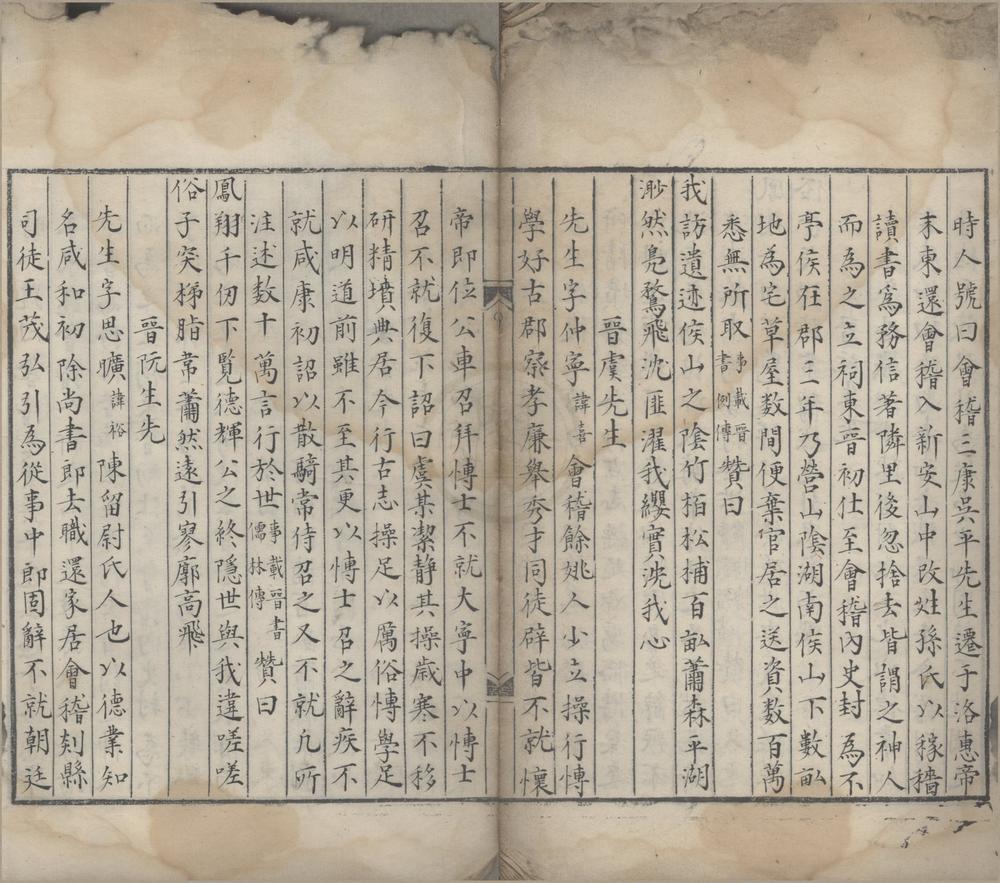 時人號曰會稽三康吳平先生遷于洛惠帝
末東還會稽入新安山中改姓孫氏以稼穡
讀書爲務信著隣里後忽捨去皆謂之神人
而為之立祠東晉初仕至會稽內史封為不
亭侯在郡三年乃營山陰湖南侯山下數畝
地為宅草屋数間便棄官居之送資数百萬
悉無所取事載晉書例傳贊曰
我訪遺迹侯山之陰竹栢松楠百畝蕭森平湖
渺然鳧鶩飛沈匪濯我纓實洗我心
晉虞先生
先生字仲寧諱喜會稽餘姚人少立操行博
學好古郡察孝廉舉秀才同徒辟皆不就懷
帝即位公車召拜博士不就大寧中以博士
召不就復下詔曰虞某潔静其操歳寒不移
研精墳典居今行古志操足以厲俗博學足
以明道前雖不至其更以博士召之辭疾不
就咸康初詔以散騎常侍召之又不就凡所
注述数十萬言行於世事載晉書儒林傳贊曰
鳳翔千仞下覧德輝公之終隱世與我違嗟嗟
俗子突梯脂韋蕭然遠引寥廓高飛
晉阮生先
先生字思曠諱裕陳留尉氏人也以德業知
名咸和初除尚書郎去職還家居會稽剡縣
司徒王茂弘引為從事中郎固辭不就朝廷